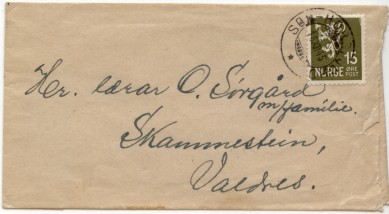 SØM-
15
NORGE
ØRE
POST
Hr. lærar O. Sørgård
m/familie.
Skammestein,
Valdres.